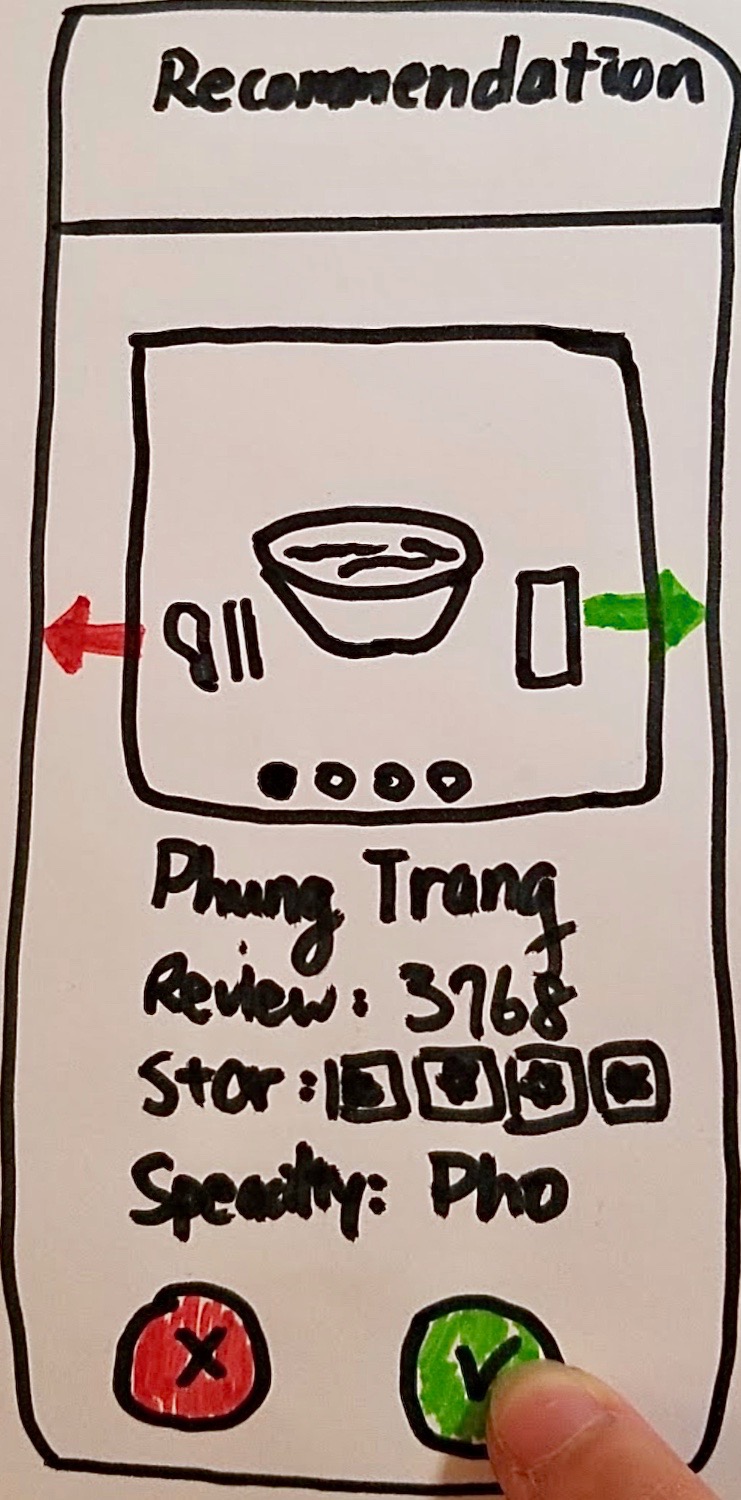 Recommendation
Phung Trang
Review: 3768
Star:
Specialty: Pho
X